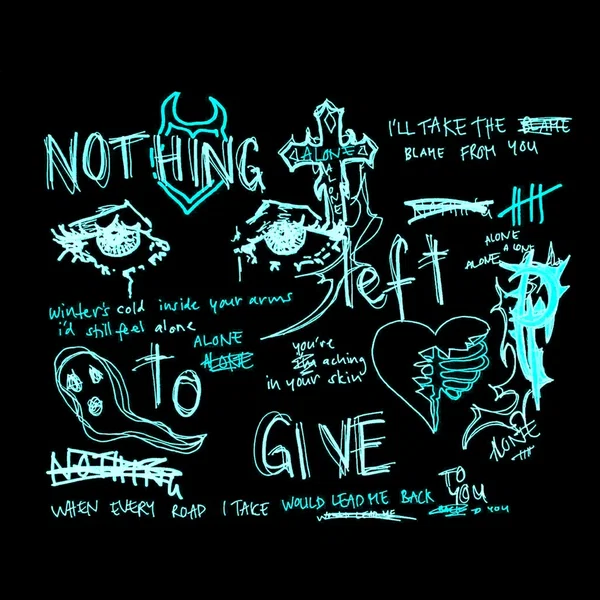 NOTHING
ALONE
ALONE
I'LL TAKE THE BLAME
BLAME FROM YOU
NOTHING
left
ALONE
ALONE
ALONE
winter's cold inside your arms
i'd still feel alone
ALONE
ALONE
you're
I'm aching
in your skin
TO
GIVE
ALONE
NOTHING
WHEN EVERY ROAD I TAKE WOULD LEAD ME BACK TO YOU
WOULD LEAD ME
BACK TO YOU